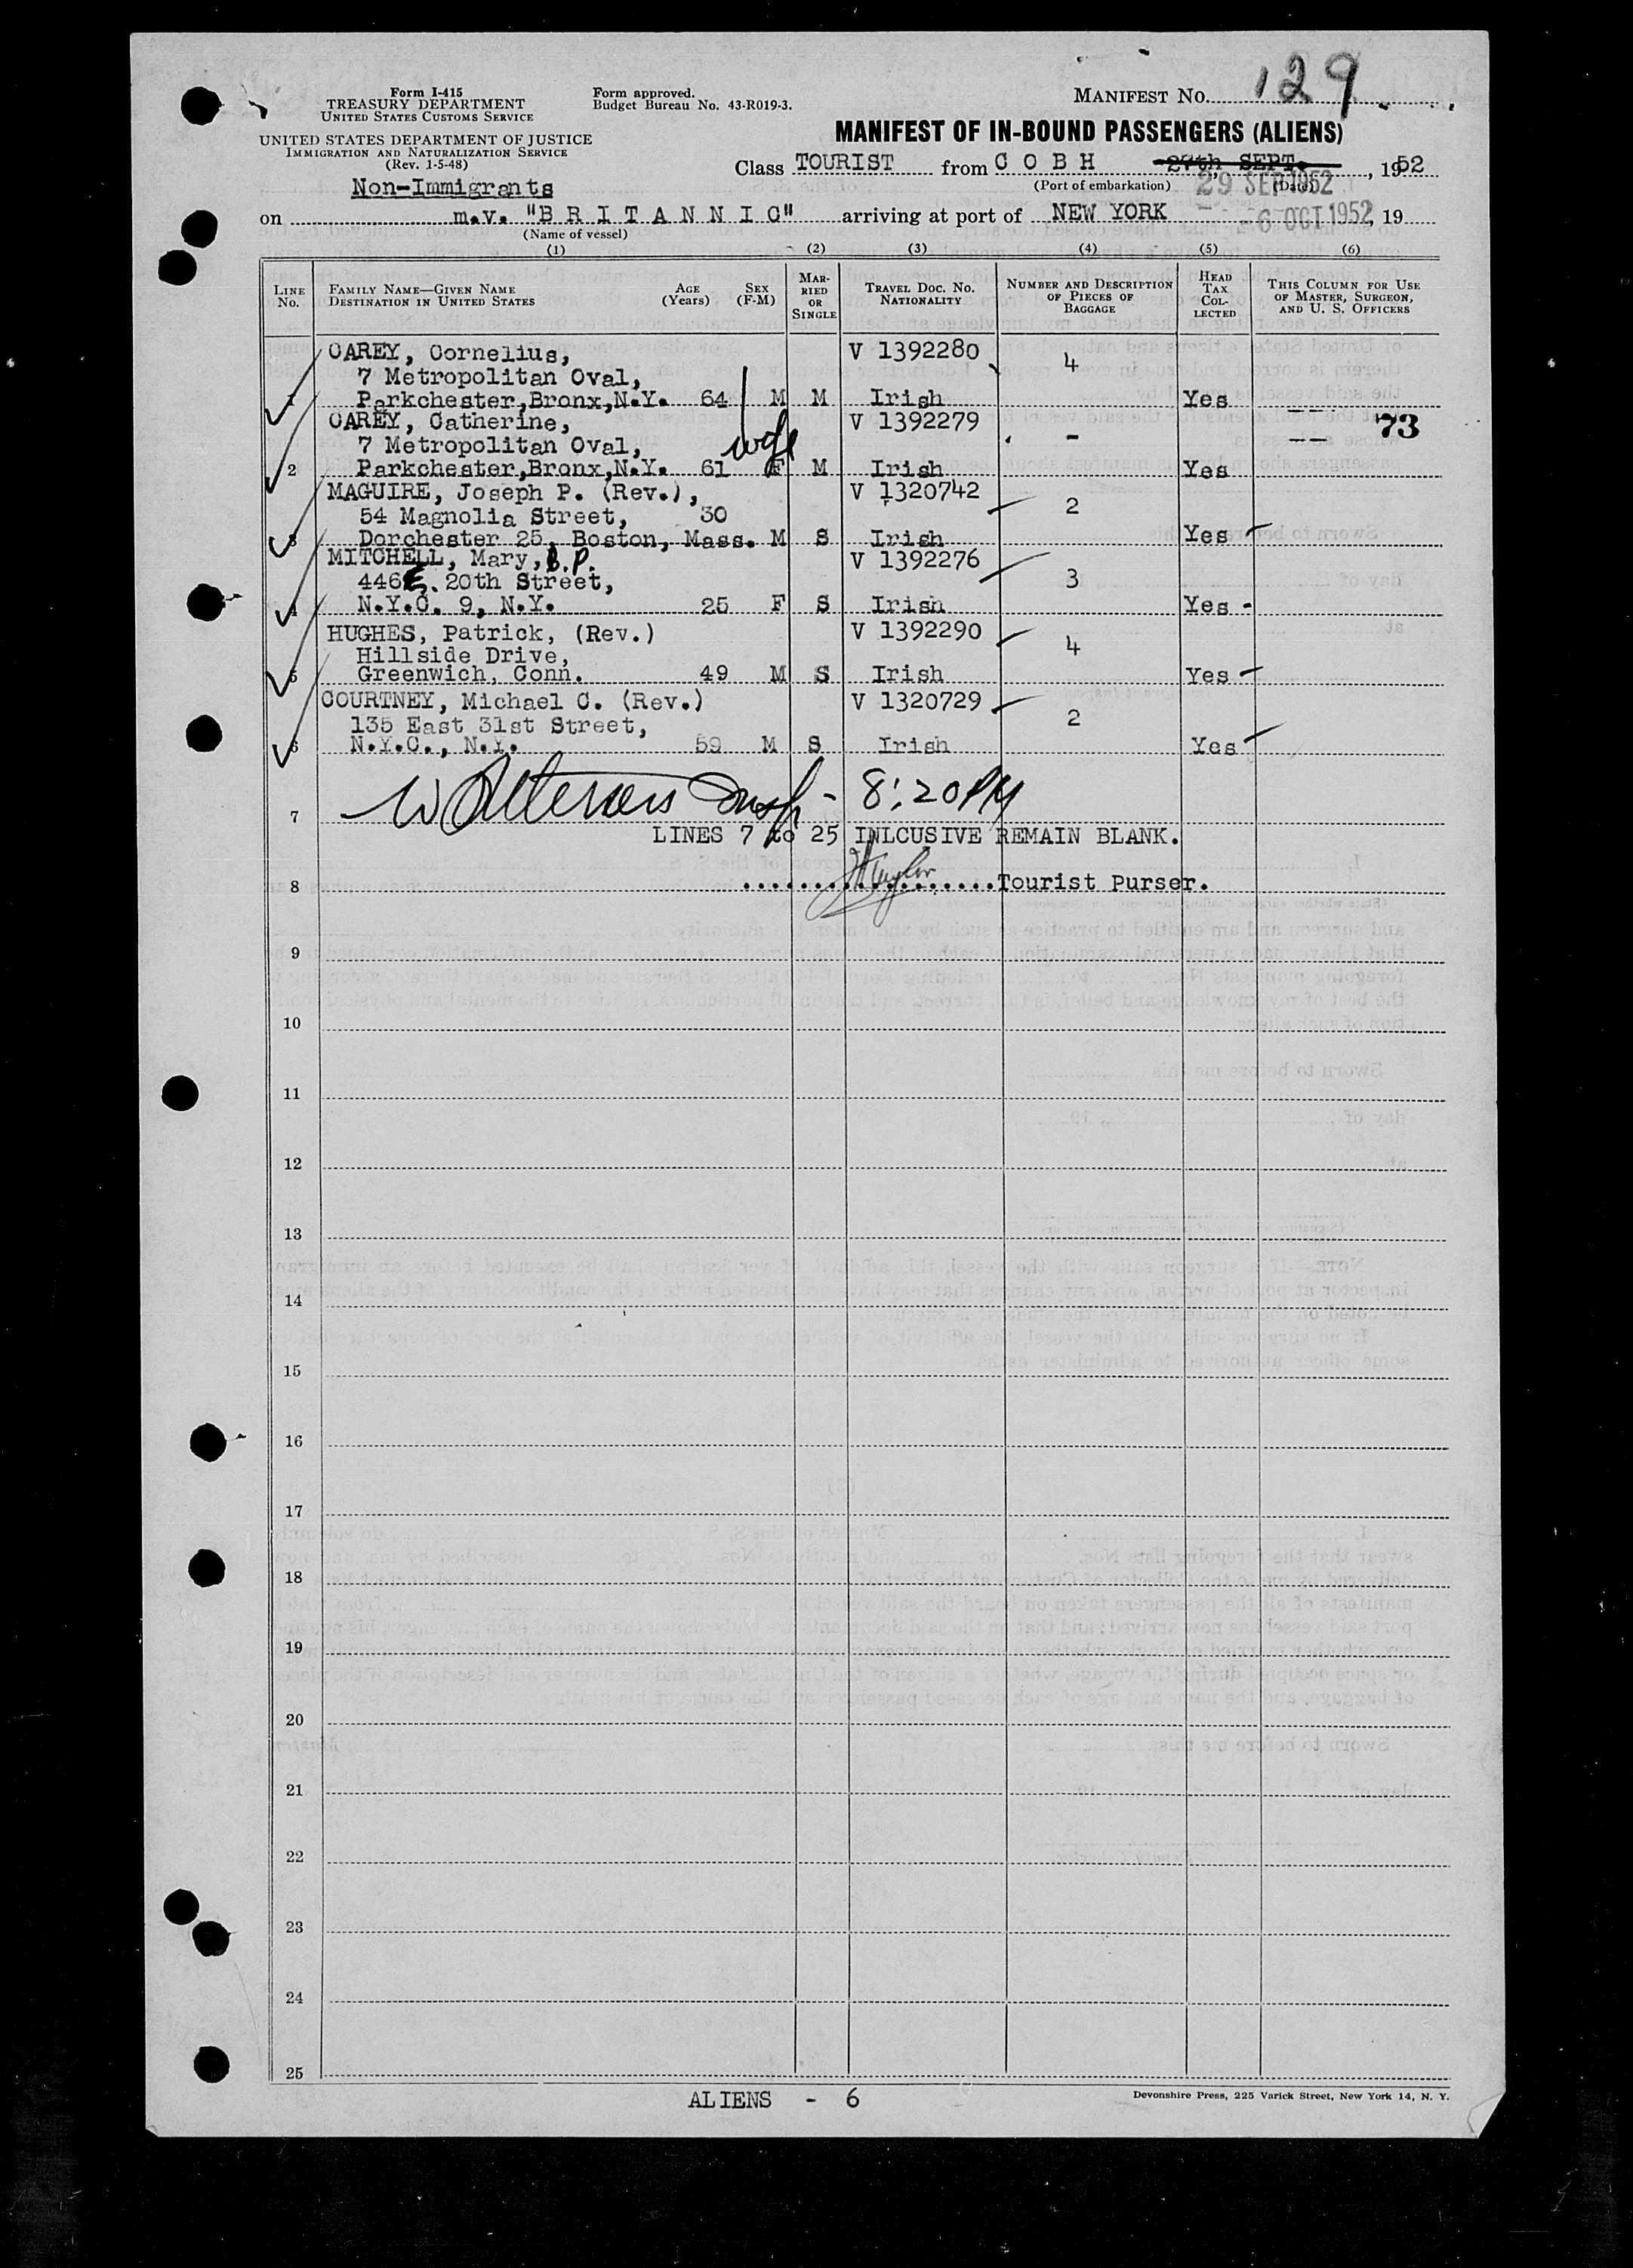 Form I-415
TREASURY DEPARTMENT
UNITED STATES CUSTOMS SERVICE
UNITED STATES DEPARTMENT OF JUSTICE
IMMIGRATION AND NATURALIZATION SERVICE
(Rev. 1-5-48)
Form approved.
Budget Bureau No. 43-R019-3.
MANIFEST NO. 129
MANIFEST OF IN-BOUND PASSENGERS (ALIENS)
Class TOURIST from C O B H 27th SEPT. , 1952
(Port of embarkation) (Date)
29 SEP 1952
Non-Immigrants
on m.v. "B R I T A N N I C" arriving at port of NEW YORK -6 OCT 1952, 19
(Name of vessel)
(1) (2) (3) (4) (5) (6)
LINE No. FAMILY NAME—GIVEN NAME DESTINATION IN UNITED STATES AGE (Years) SEX (F-M) MARRIED OR SINGLE TRAVEL DOC. NO. NATIONALITY NUMBER AND DESCRIPTION OF PIECES OF BAGGAGE HEAD TAX COLLECTED THIS COLUMN FOR USE OF MASTER, SURGEON, AND U. S. OFFICERS
CAREY, Cornelius, V 1392280 4
7 Metropolitan Oval,
1 Parkchester,Bronx,N.Y. 64 M M Irish Yes --
CAREY, Catherine, V 1392279 - 73
7 Metropolitan Oval, wife --
2 Parkchester,Bronx,N.Y. 61 F M Irish Yes
MAGUIRE, Joseph P. (Rev.), V 1320742 2
54 Magnolia Street, 30
3 Dorchester 25, Boston, Mass. M S Irish Yes
MITCHELL, Mary, B.P. V 1392276 3
446 E. 20th Street,
4 N.Y.C. 9, N.Y. 25 F S Irish Yes -
HUGHES, Patrick, (Rev.) V 1392290 4
Hillside Drive,
5 Greenwich, Conn. 49 M S Irish Yes
COURTNEY, Michael C. (Rev.) V 1320729 2
135 East 31st Street,
6 N.Y.C., N.Y. 59 M S Irish Yes
Insp - 8:20 PM
7
LINES 7 to 25 INLCUSIVE REMAIN BLANK.
8 ..................Tourist Purser.
Taylor
9
10
11
12
13
14
15
16
17
18
19
20
21
22
23
24
25
ALIENS - 6
Devonshire Press, 225 Varick Street, New York 14, N. Y.